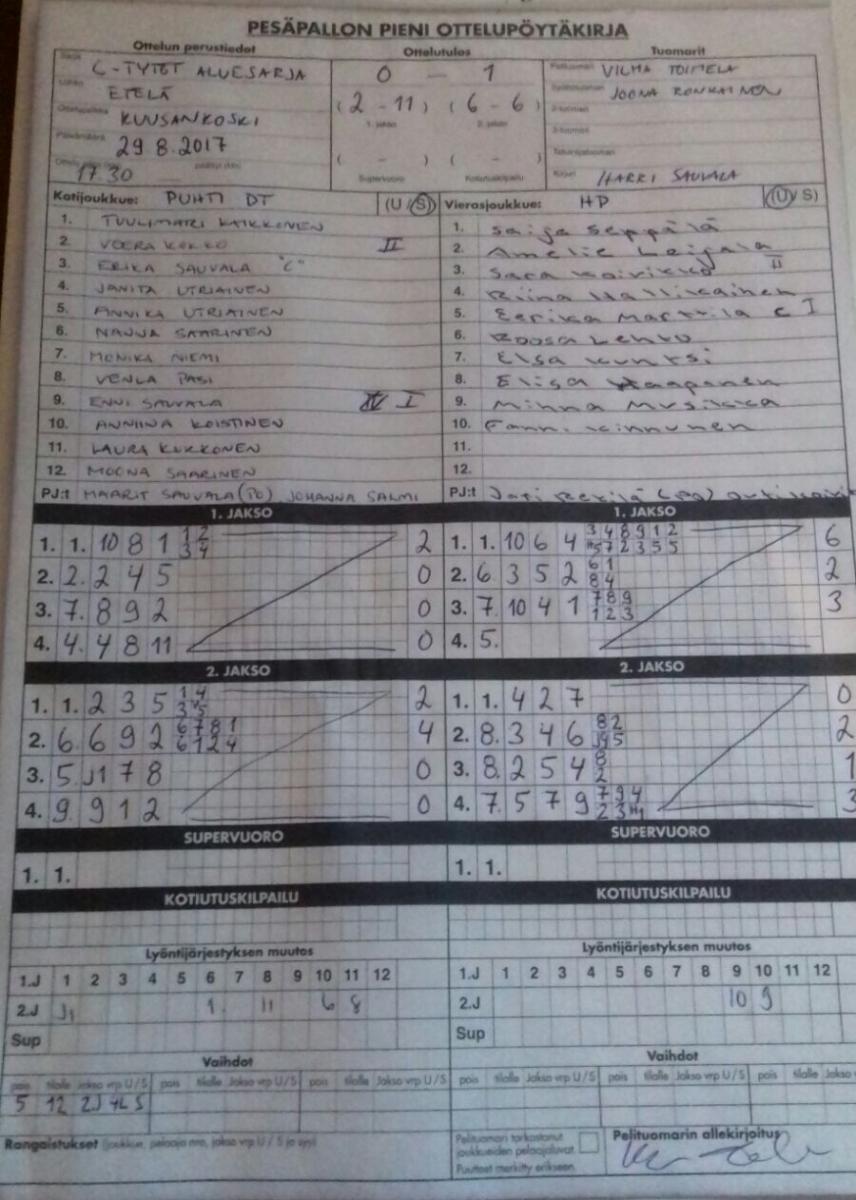 PESÄPALLON PIENI OTTELUPÖYTÄKIRJA
Ottelun perustiedot Ottelutulos Tuomarit
C-TYTÖT ALUESARJA
ETELÄ
Ottelupaikka KUUSANKOSKI
Päivämäärä 29.8.2017
17.30
0 - 1
(2 - 11) (6 - 6)
1. jakso 2. jakso
( - ) ( - )
Supervuoro Kotiutuskilpailu
Pelituomari VILMA TOIMELA
JOONA RONKAINEN
2-tuomari
3-tuomari
Takarajatuomari
Kirjuri HARRI SAUVALA
Kotijoukkue: PUHTI DT (U / S) Vierasjoukkue: HP (U / S)
1. TUULIMARI KAIKKONEN 1. Saija Seppälä
2. VEERA KOKKO II 2. Amelie Leijala
3. ERIKA SAUVALA "C" 3. Sara Koivikko II
4. JANITA UTRIAINEN 4. Riina Hallikainen
5. ANNIKA UTRIAINEN 5. Eerika Marttila C I
6. NANNA SAARINEN 6. Roosa Lehto
7. MONIKA NIEMI 7. Elsa Kuntsi
8. VENLA PASI 8. Elisa Haapanen
9. ENNI SAUVALA I 9. Minna Musikka
10. ANNIINA KOISTINEN 10. Fanni Kinnunen
11. LAURA KUKKONEN 11.
12. MOONA SAARINEN 12.
PJ:t MAARIT SAUVALA (PO) JOHANNA SALMI PJ:t
1. JAKSO 1. JAKSO
1. 1. 10 8 1 1 2 2 1. 1. 10 6 4 3 4 8 9 1 2 6
3 4 5 7 2 3 5 5
2. 2. 2 4 5 0 2. 6 3 5 2 6 1 2
8 4
3. 7. 8 9 2 0 3. 7. 10 4 1 7 8 9 3
1 2 3
4. 4. 4 8 11 0 4. 5.
2. JAKSO 2. JAKSO
1. 1. 2 3 5 1 4 2 1. 1. 4 2 7 0
3 5
2. 6 6 9 2 6 7 8 1 4 2. 8. 3 4 6 8 2 2
6 1 2 4
3. 5 J1 7 8 0 3. 8. 2 5 4 8 1
2
4. 9. 9 1 2 0 4. 7. 5 7 9 7 9 4 3
2 3
SUPERVUORO SUPERVUORO
1. 1. 1. 1.
KOTIUTUSKILPAILU KOTIUTUSKILPAILU
Lyöntijärjestyksen muutos Lyöntijärjestyksen muutos
1.J 1 2 3 4 5 6 7 8 9 10 11 12 1.J 1 2 3 4 5 6 7 8 9 10 11 12
2.J J1 1. 11 6 8 2.J 10 9
Sup Sup
Vaihdot Vaihdot
pois tilalle Jakso vrp U/S pois tilalle Jakso vrp U/S pois tilalle Jakso vrp U/S pois tilalle Jakso vrp U/S pois tilalle Jakso vrp U/S pois tilalle Jakso
5 12 2J 4L S
Rangaistukset (joukkue, pelaaja nro, jakso vrp U / S ja syy)
Pelituomari tarkastanut
joukkueiden pelaajaluvat.
Puutteet merkitty erikseen.
Pelituomarin allekirjoitus